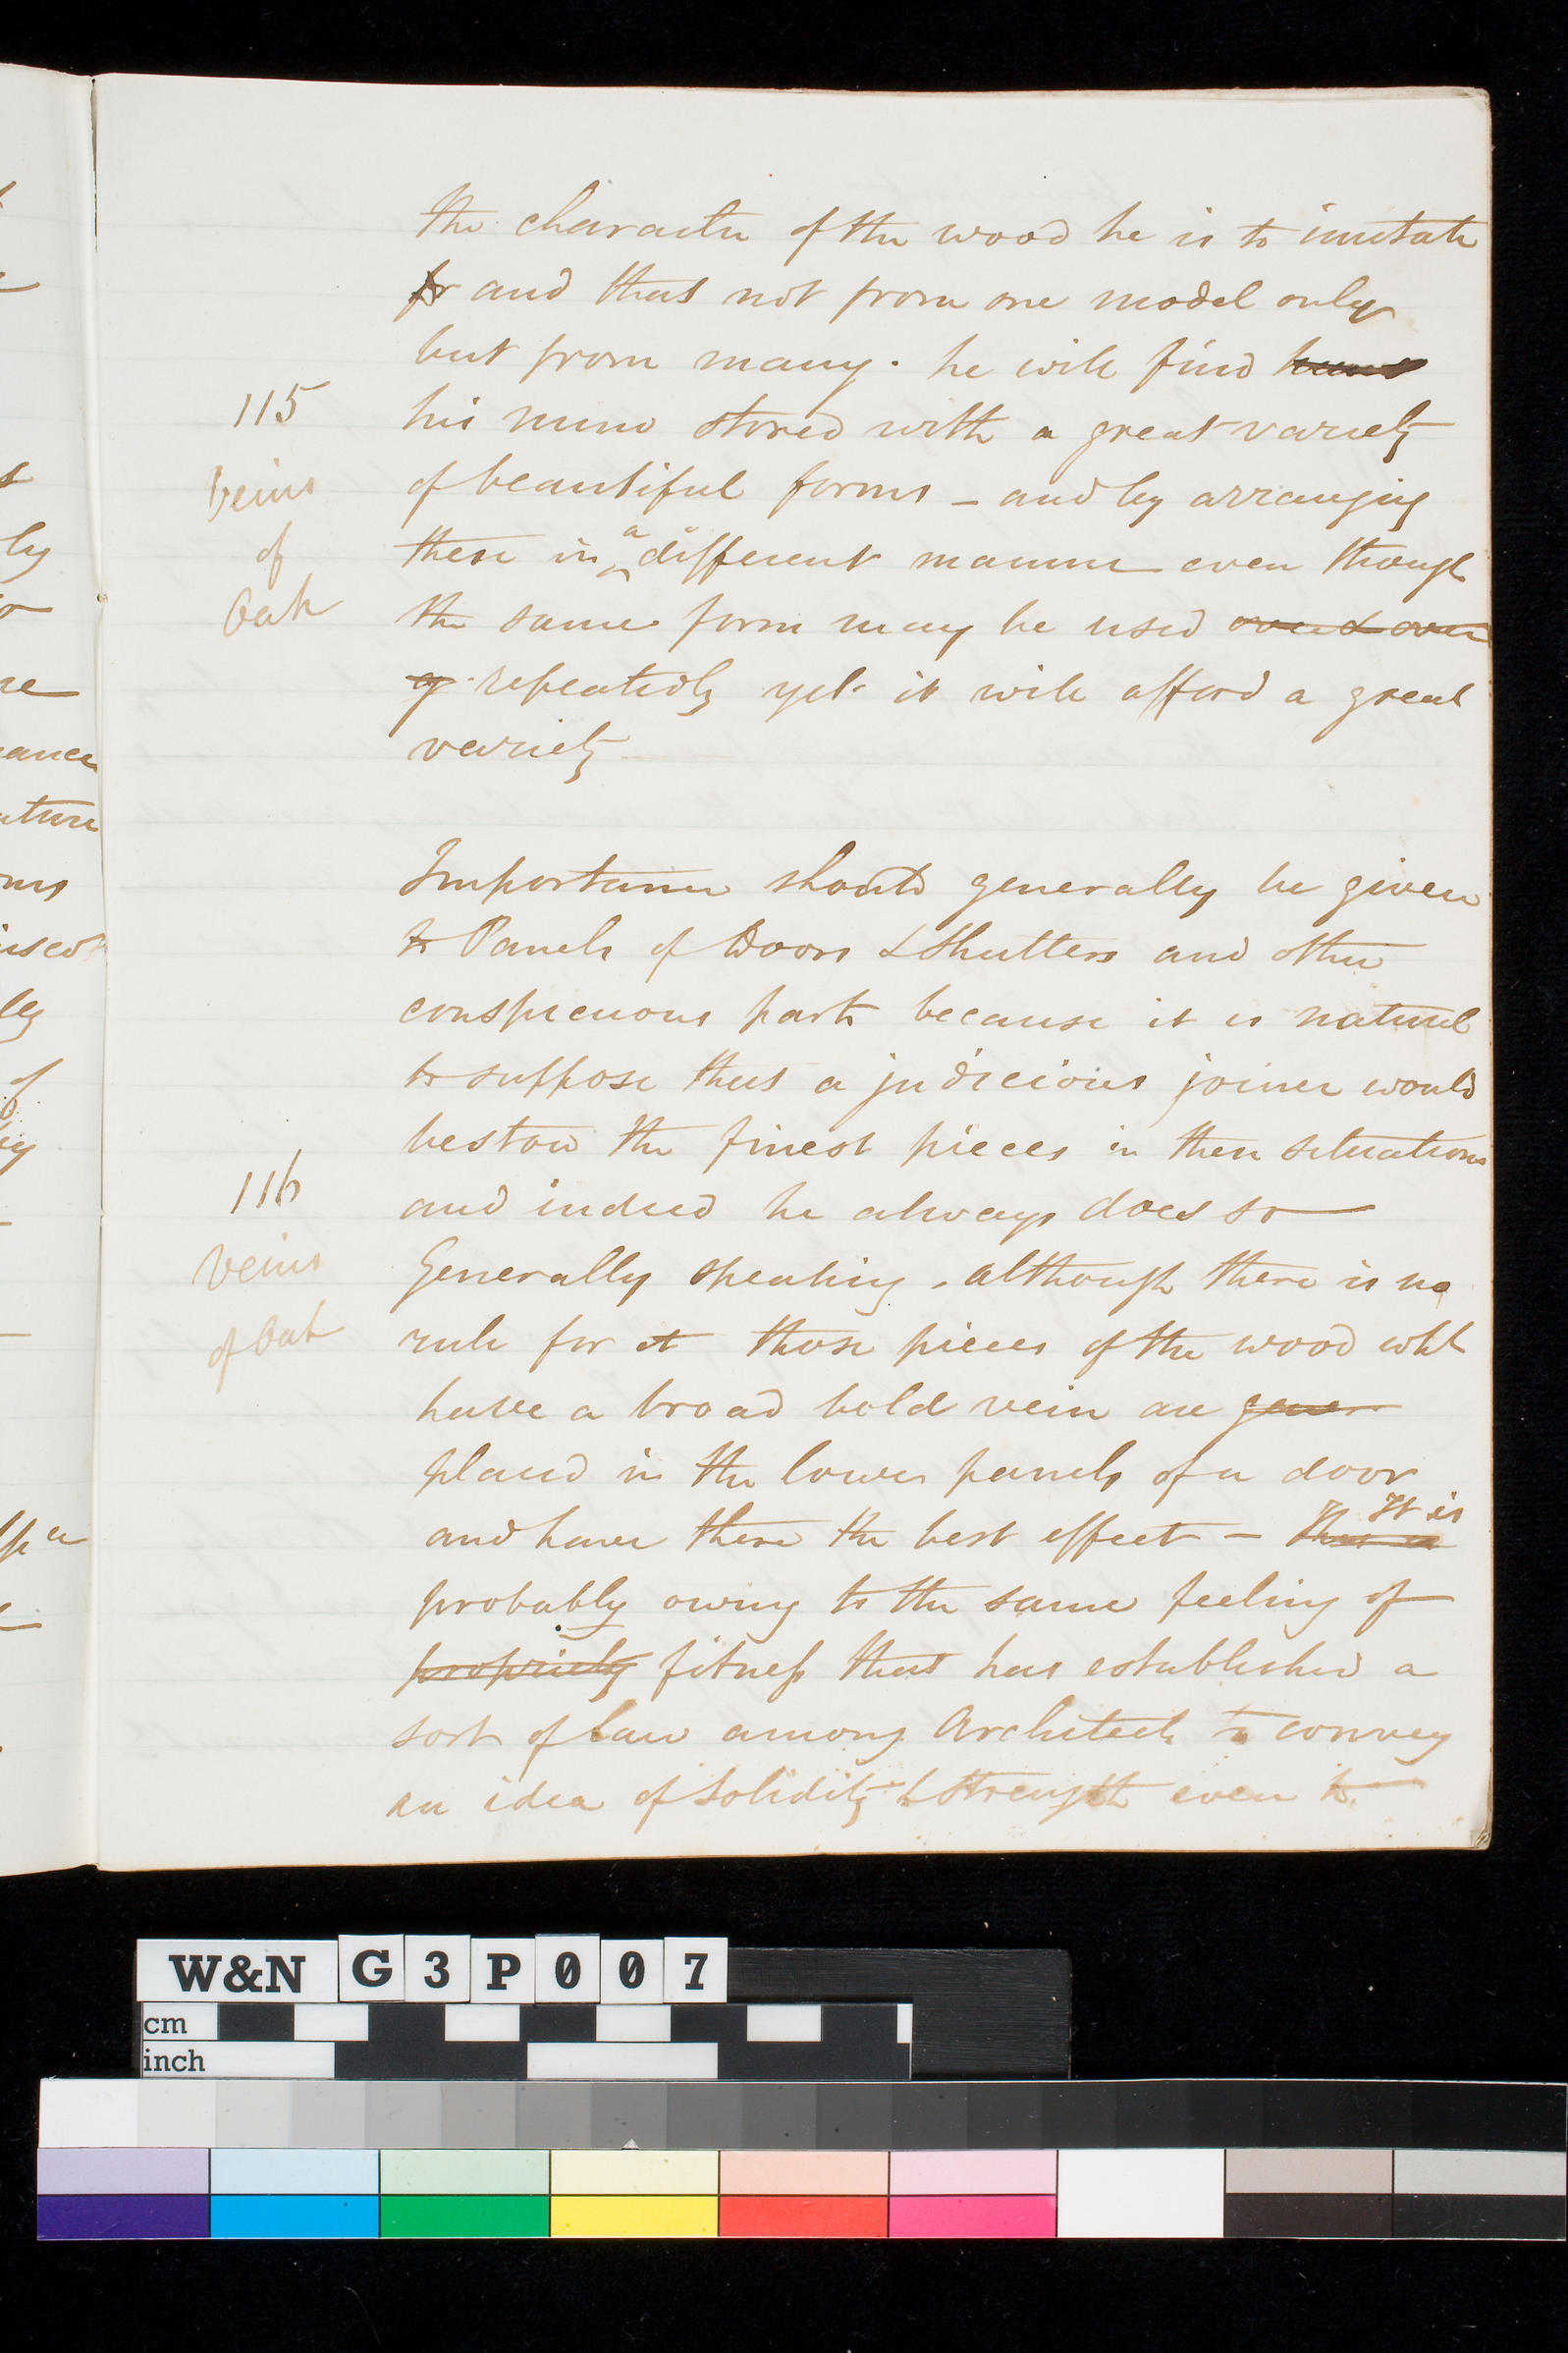 the character of the wood he is to imitate
fr and that not from one model only
but from many. he will find
115
his mind stored with a great variety
veins
of beautiful forms – and by arranging
of
these in a different manner even though
Oak
the same form may be used over & over
ag repeatedly yet it will afford a great
variety
Importance should generally be given
to Panels of Doors & Shutters and other
conspicuous parts because it is natural
to suppose that a judicious joiner would
bestow the finest pieces in these situations
116
and indeed he always does so
veins
Generally speaking, although there is no
of Oak
rule for it those pieces of the wood which
have a broad bold vein are gener
placed in the lower panels of a door
and have there the best effect – This is It is
probably owing to the same feeling of
propriety fitness that has established a
sort of law among Architects to convey
an idea of solidity & strength even to
ly
ne
ance
ature
ms
ly
of
W&N G3P007
cm
inch